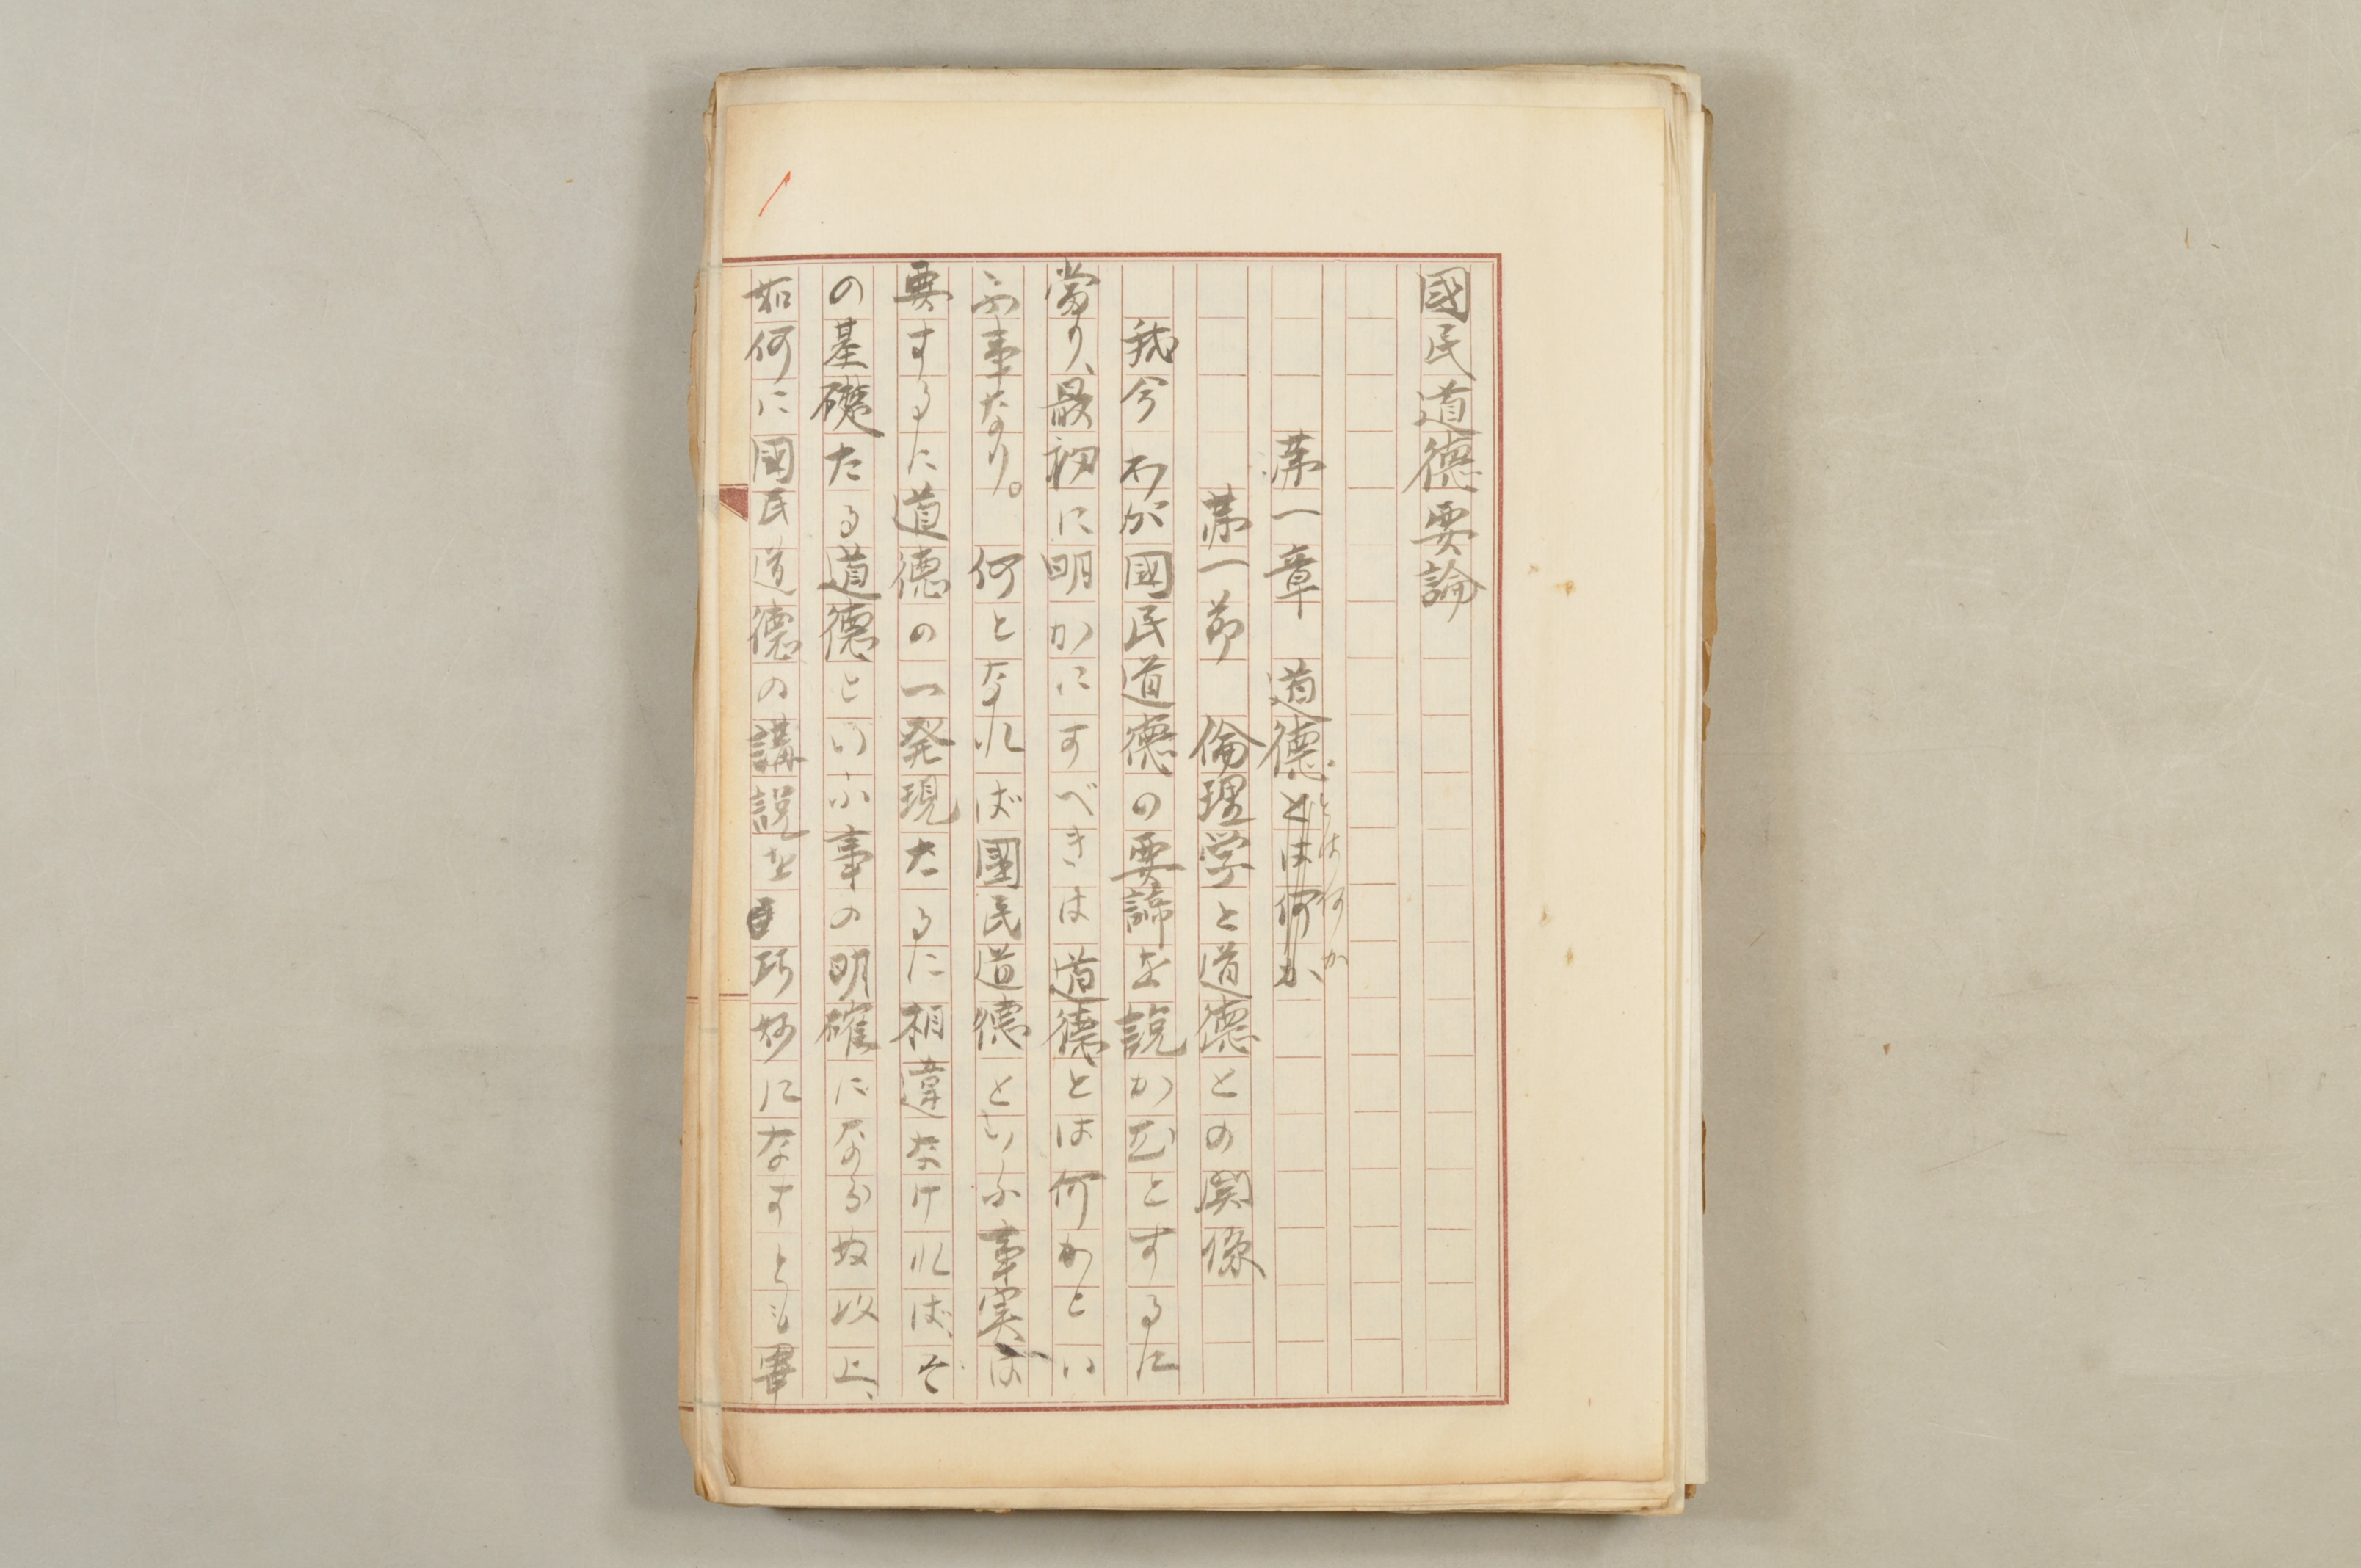 國民道德要論
第一章　道德とは何か
とは何か
第一節　倫理学と道德との関係
我今わが國民道德の要諦を説かむとするに
當り、最初に明かにすべきは道德とは何かとい
ふ事なり。　何となれば國民道德といふ事実は
要するに道德の一発現たるに相違なければ、そ
の基礎たる道德といふ事の明確にならぬ以上、
如何に國民道德の講説を巧妙になすとも畢